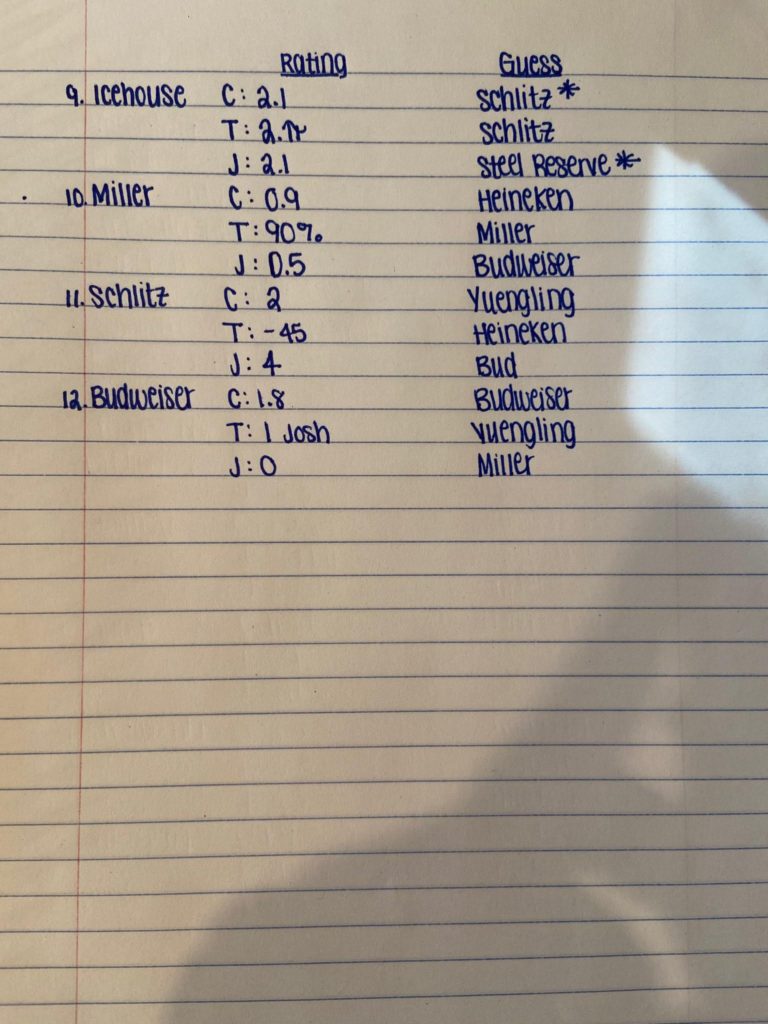 Rating Guess
9. Icehouse C: 2.1 Schlitz *
T: 2.π Schlitz
J: 2.1 Steel Reserve *
10. Miller C: 0.9 Heineken
T: 90% Miller
J: 0.5 Budweiser
11. Schlitz C: 2 Yuengling
T: -45 Heineken
J: 4 Bud
12. Budweiser C: 1.8 Budweiser
T: 1 Josh Yuengling
J: 0 Miller